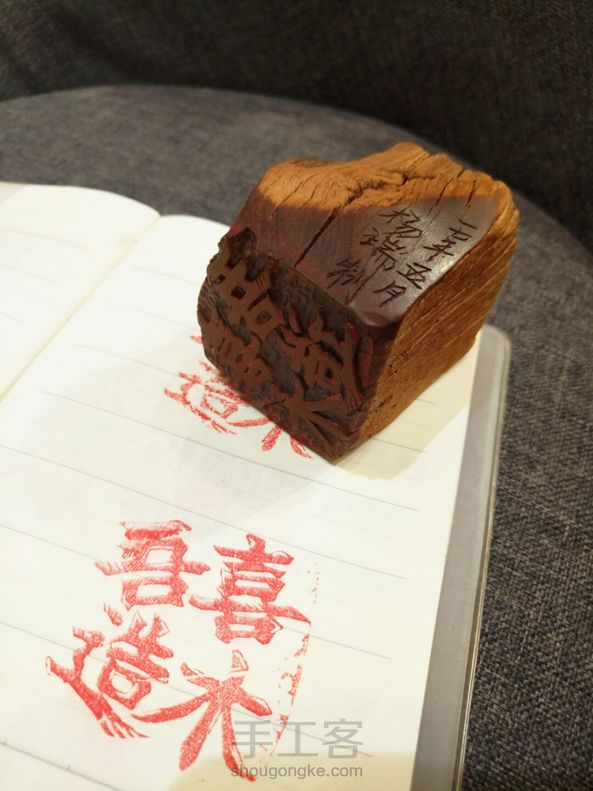 年五月
杨瑞制
喜木
吾造
手工客
shougongke.com